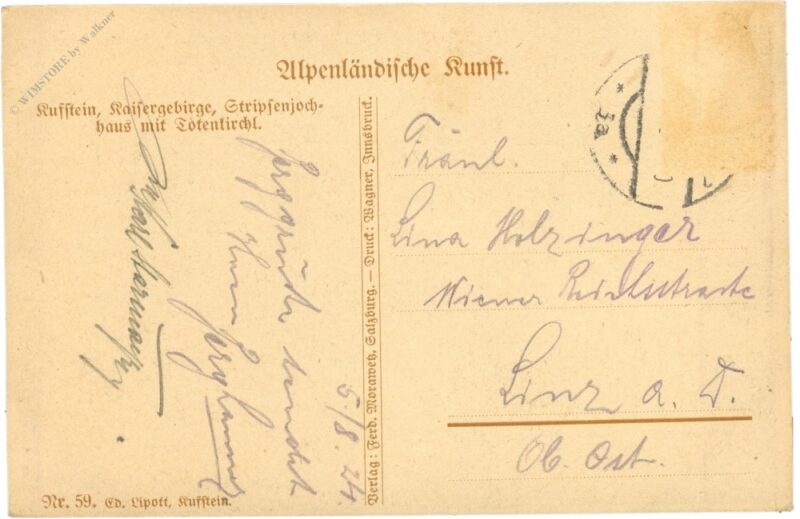 © WIMSTORE by Walkner
Alpenländische Kunst.
Kufstein, Kaisergebirge, Stripsenjoch-
haus mit Totenkirchl.
Berggrüße sendet
Ihnen
5./8. 24.
Karl
Verlag: Ferd. Morawetz, Salzburg. — Druck: Wagner, Innsbruck.
Fräul.
Lina Holzinger
Wiener Reichsstraße
Linz a. D.
Ob. Öst.
3a
Nr. 59. Ed. Lipott, Kufstein.